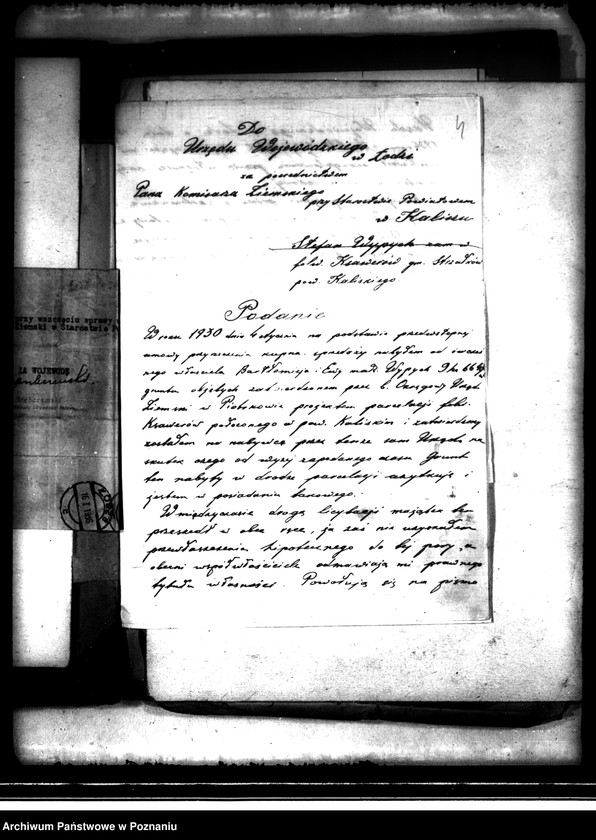 4
Do
Urzędu Wojewódzkiego
w Łodzi
za pośrednictwem
Pana Komisarza Ziemskiego
przy Starostwie Powiatowem
w Kaliszu
Stefan Wypych zam w
folw. Ksawerów gm. Strzałków
pow. Kaliskiego
Podanie
W roku 1930 dnia stycznia na podstawie przedwstępnej
umowy przyrzeczenia kupna sprzedaży nabyłem od ówczes
nego właściciela Bartłomieja i Ewy małż. Wypych 9 ha 66
gruntu objętych zatwierdzonem przez b. Okręgowy Urząd
Ziemski w Piotrkowie projektem parcelacji folw.
Ksawerów położonego w pow. Kaliskim i zatwierdzony
zostałem na nabywcę przez tenże sam Urząd na
skutek czego od wyżej zapodanego czasu grunt
ten nabyty w drodze parcelacji użytkuję i
jestem w posiadaniu takowego.
W międzyczasie drogą licytacji majątek ten
przeszedł w obce ręce, ja zaś nie uzyskałem
przewłaszczenia hipotecznego do tej pory, a
obecni współwłaściciele odmawiają mi prawnego
tytułu własności. Powołując się na pismo
przy wszczęciu sprawy
Ziemski w Starostwie P
ZA WOJEWODĘ
Archiwum Państwowe w Poznaniu